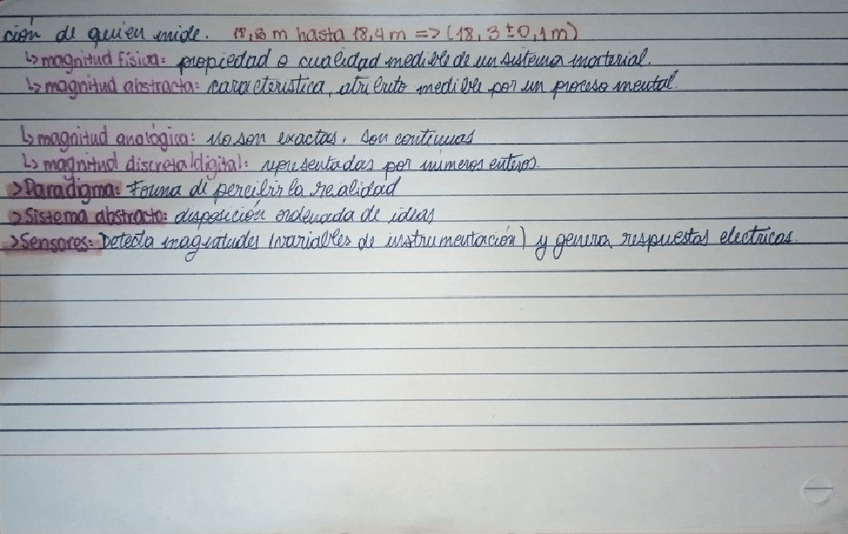 ción de quien mide. 18,2 m hasta 18,4 m => (18,3 ± 0,1 m)
↳ magnitud física: propiedad o cualidad medible de un sistema material.
↳ magnitud abstracta: característica, atributo medible por un proceso mental.
↳ magnitud analógica: no son exactas. son continuas
↳ magnitud discreta/digital: representadas por números enteros.
> Paradigma: Forma de percibir la realidad
> Sistema abstracto: disposición ordenada de ideas
> Sensores: Detecta magnitudes (variables de instrumentación) y genera respuestas electricas.